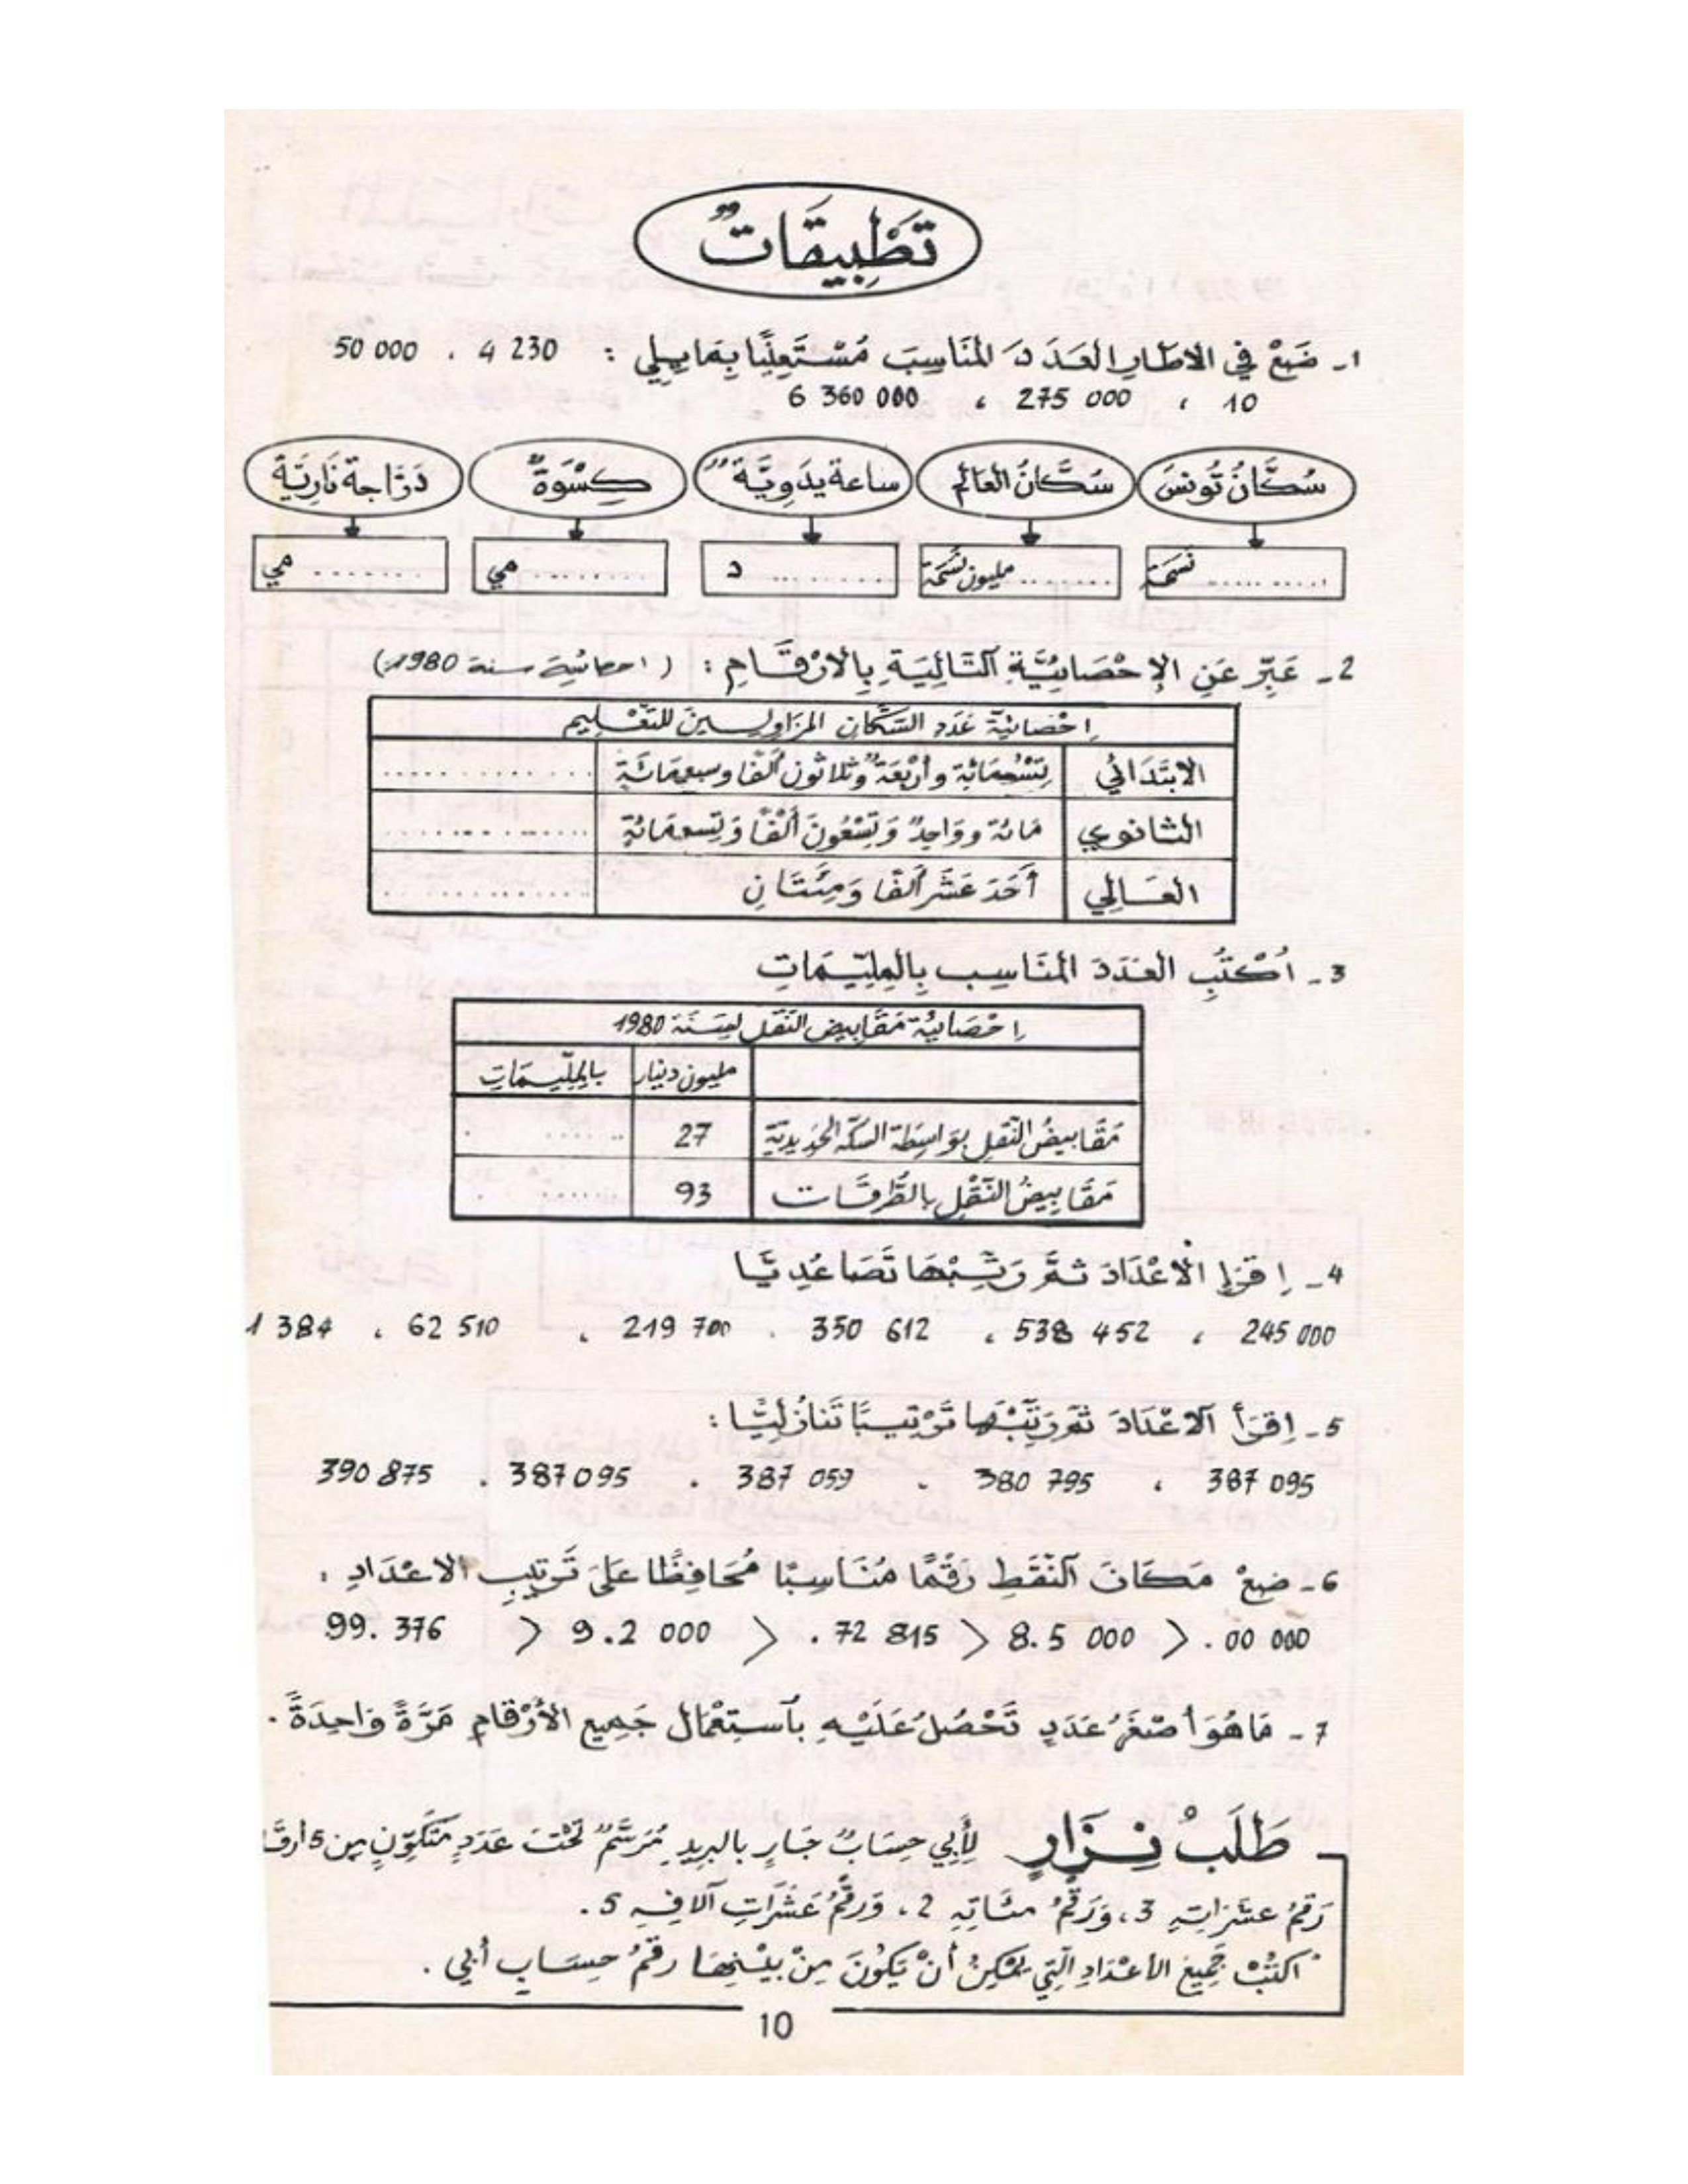 تَطْبِيقَاتٌ
1 - ضَعْ في الاطار العَدَدَ المُنَاسِبَ مُسْتَعِينًا بِمَا يلِي : 230 4 ، 000 50
10 ، 000 275 ، 000 360 6
سُكَّانُ تُونسَ
سُكَّانُ العَالَمِ
ساعة يدَوِيَّةٌ
كِسْوَةٌ
دَرَّاجة نَارِيَّةٌ
.......... نَسَمَة
........ مليون نَسَمَة
........ د
........ مي
....... مي
2 - عَبِّرْ عَنِ الإِحْصَائِيَّةِ التَّالِيَةِ بِالأرْقَامِ : ( احصائية سنة 1980:)
إِحْصائيّة عَدَد السُّكّان المزَاولِينَ للتَّعْلِيم
الابتدَائي
تِسْعُمَائة وأرْبَعَةٌ وثلاثون ألفًا وسبعمَائَة
............
الثانوي
مَائة ووَاحِدٌ وَتِسْعُونَ ألْفًا وَتِسعمَائة
............
العَالِي
أحَدَ عَشَرَ ألفًا وَمِئَتَانِ
............
3 - اُكْتُبِ العَدَدَ المُنَاسِب بِالمِلِّيمَاتِ
إِحْصَائِيّة مَقَابِيض النَّقْل لِسَنَة 1980
مليون دينار
بالملِّيمَاتِ
مَقَابيضُ النَّقل بوَاسِطَة السكّة الحَدِيديّة
27
.......
مَقَابِيضُ النَّقْل بالطُّرقَات
93
.......
4 - اِقرَإ الأعْدَادَ ثمَّ رَتِّبْهَا تَصَاعُدِيًّا
245 000 ، 538 452 ، 350 612 ، 219 700 ، 62 510 ، 1 384
5 - اِقرَأ الاعْدَادَ ثمّ رَتِّبْهَا تَرْتِيبًا تَنَازُلِيًّا :
387 095 ، 380 795 ، 387 059 ، 387 095 ، 390 875
6 - ضعْ مَكَانَ النُّقَطِ رَقْمًا مُنَاسِبًا مُحَافِظًا عَلَى تَرتِيبِ الاعْدَادِ :
99. 376 > 9.2 000 > .72 815 > 8.5 000 > .00 000
7 - مَا هُوَ أصْغَرُ عَدَدٍ تَحْصُلُ عَلَيْهِ بِاسْتِعْمَال جَمِيع الأرْقامِ مَرَّةً وَاحِدَةً .
طَلَبُ نِزَارٍ لِأبِي حِسَابٌ جَارٍ بالبريدِ مُرَسَّمٌ تَحْتَ عَدَدٍ مُتَكَوِّنٍ مِن 5 أرقَا
رَقمُ عشَرَاتِهِ 3 ، وَرَقْمُ مئَاتِهِ 2 ، وَرقْمُ عَشَرَاتِ آلافِهِ 5 .
اكتُبْ جَمِيعَ الأعْدَادِ التِي يُمْكِنُ أنْ يَكُونَ مِنْ بيْنِهَا رقْمُ حِسَابِ أبي .
10